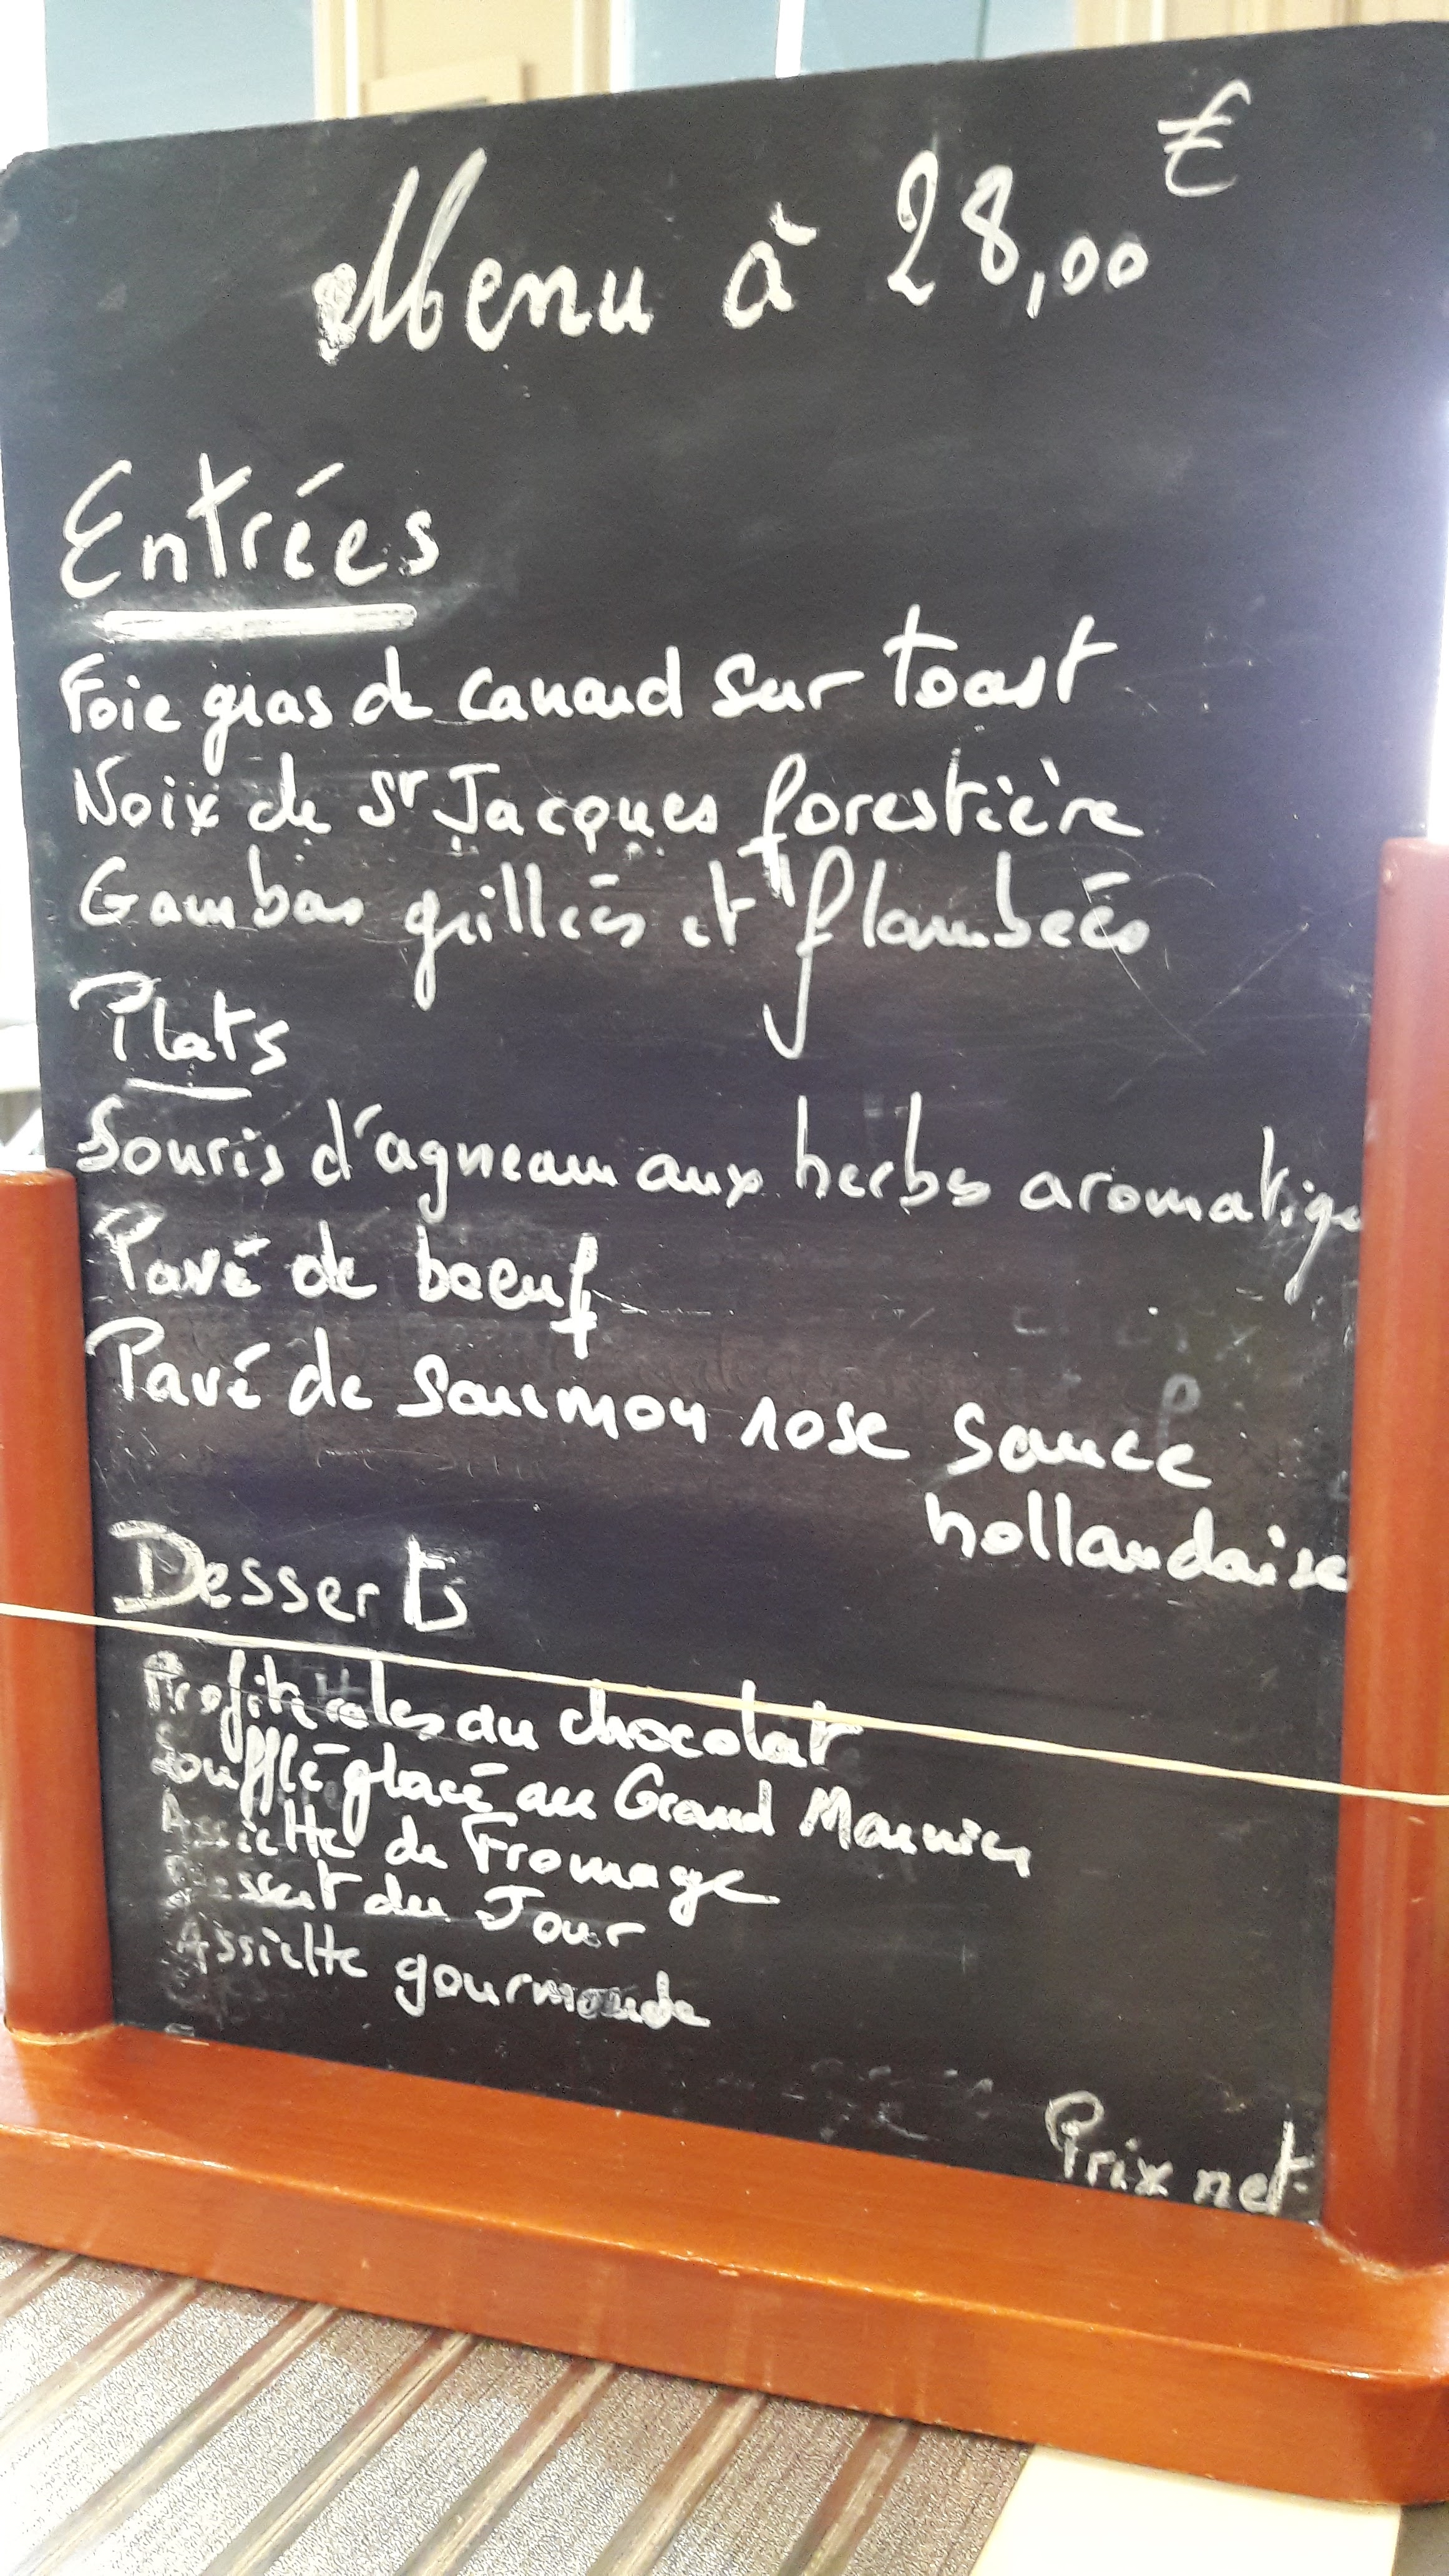 Menu à 28,00 €
Entrées
Foie gras de canard sur toast
Noix de St Jacques forestière
Gambas grillées et flambées
Plats
Souris d'agneau aux herbes aromatique
Pavé de boeuf
Pavé de saumon rose sauce
hollandaise
Desserts
Profiteroles au chocolat
Soufflé glacé au Grand Marnier
Assiette de Fromage
Dessert du Jour
Assiette gourmande
Prix net